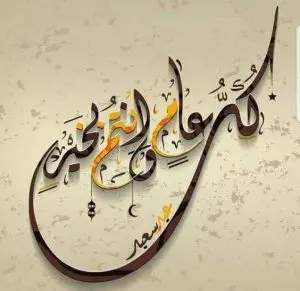 كُلُّ عامٍ وانتم بخيرٍ
عيد سعيد